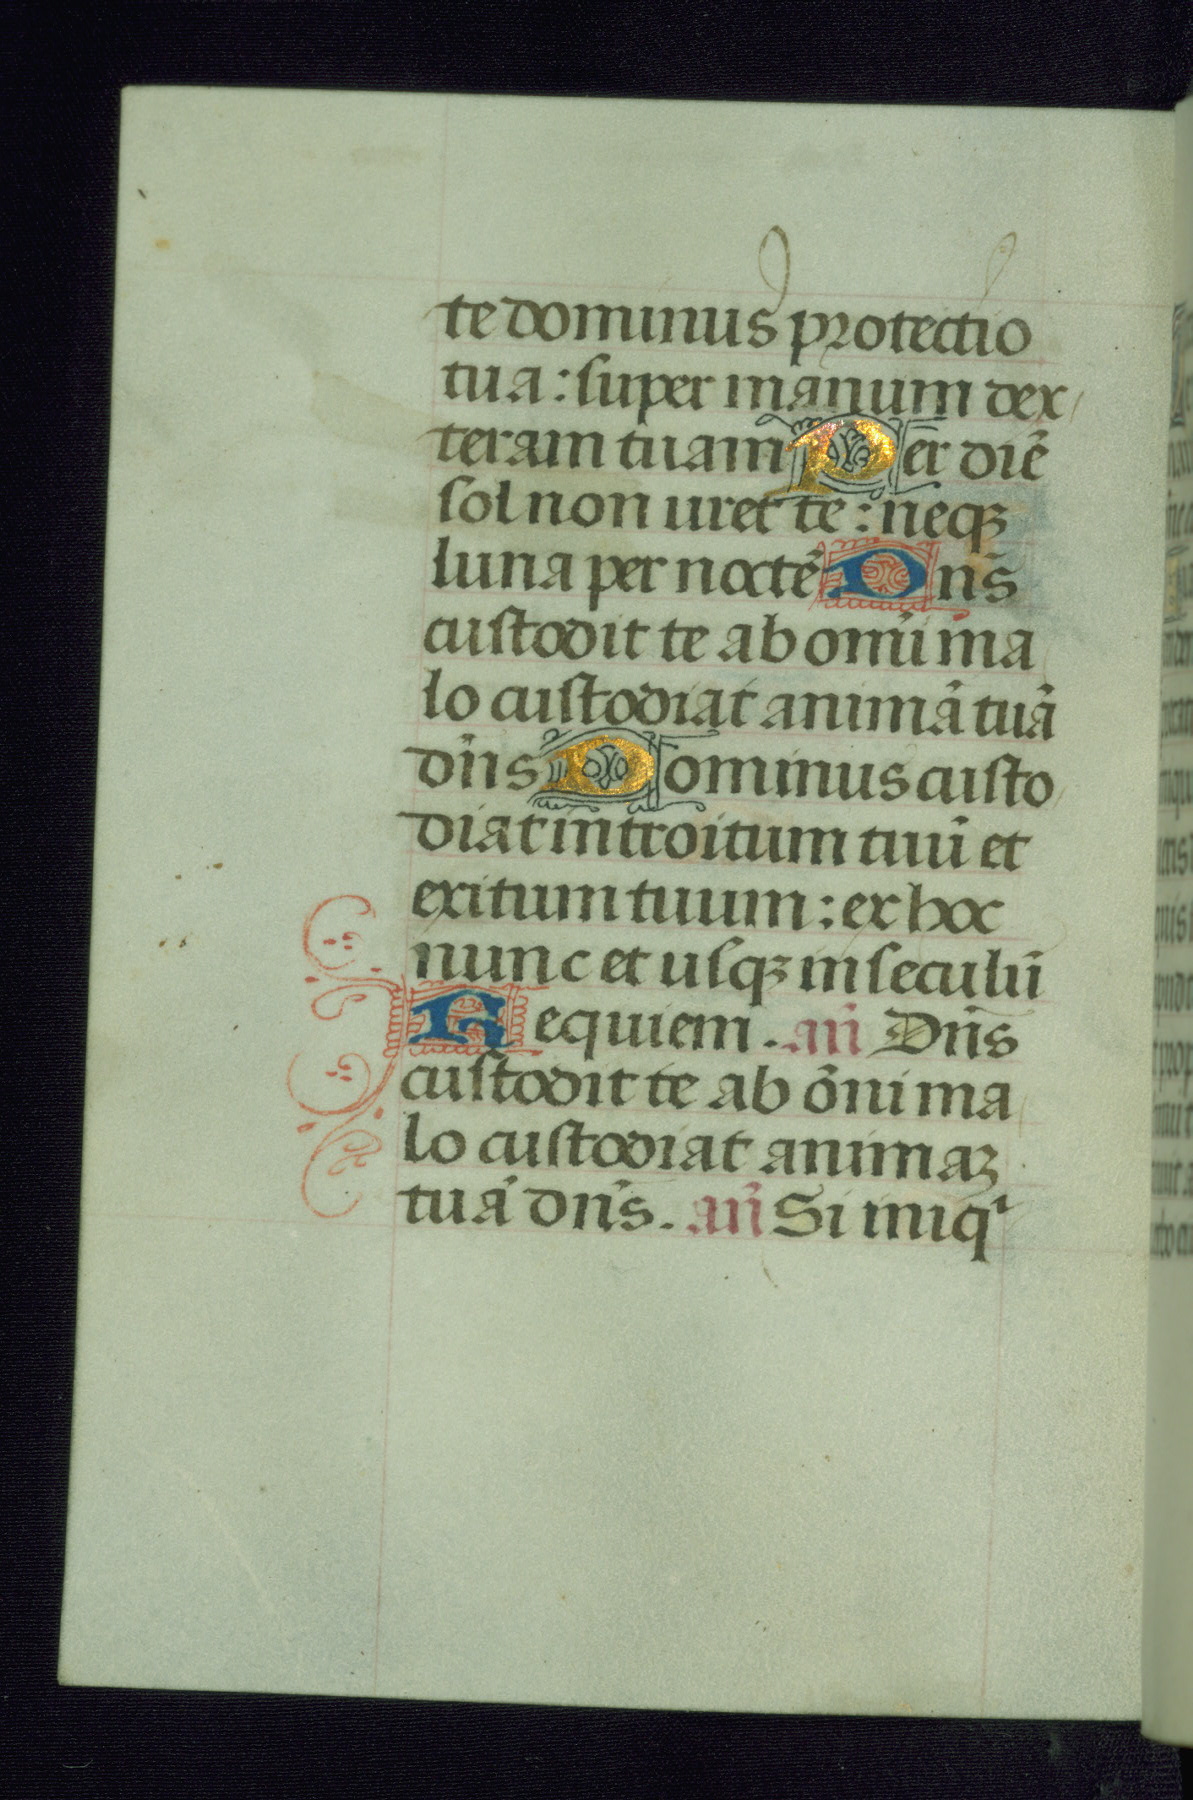 te dominus protectio
tua : super manum dex
teram tuam Per diē
sol non uret te : neqꝫ
luna per noctē Dn̄s
custodit te ab omni ma
lo custodiat animā tuā
dn̄s Dominus custo
diat introitum tuū et
exitum tuum : ex hoc
nunc et usqꝫ in seculū
Requiem . an̄ Dn̄s
custodit te ab ōni ma
lo custodiat animaꝫ
tuā dn̄s . an̄ Si iniqⁱ